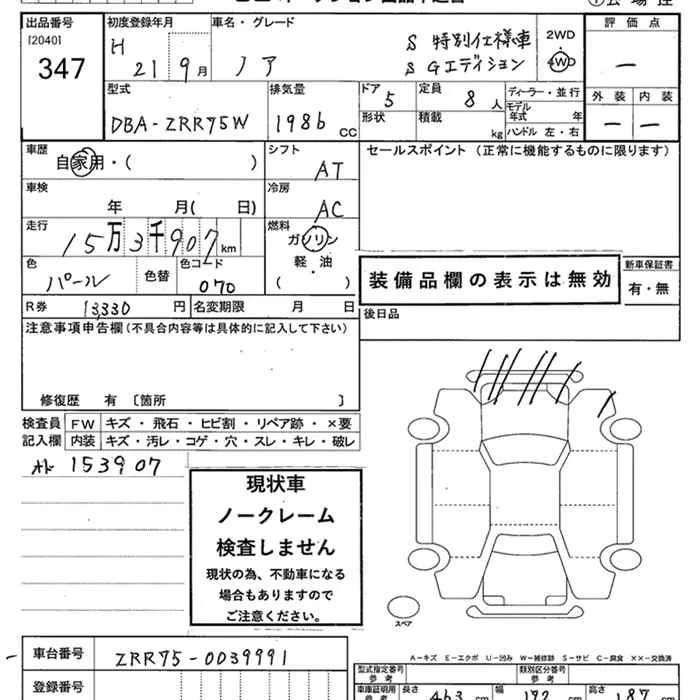 出品番号 初度登録年月 車名・グレード 評価点
[2040] H S 特別仕様車 2WD
347 21 9月 ノア S Gエディション 4WD ー
型式 排気量 ドア 定員 ディーラー・並行 外装 内装
DBA-ZRR75W 1986 CC 5 8人 モデル年式 年 ー ー
形状 積載 kg ハンドル 左・右
車歴 自家用・( ) シフト AT セールスポイント (正常に機能するものに限ります)
車検 年 月( 日) 冷房 AC
走行 15万3千907km 燃料 ガソリン
軽・油
( )
色 パール 色替 色コード 070
装備品欄の表示は無効
新車保証書
有・無
R券 13,330 円 名変期限 月 日
後日品
注意事項申告欄(不具合内容等は具体的に記入して下さい)
修復歴 有 〔箇所 〕
検査員 FW キズ・飛石・ヒビ割・リペア跡・×要
記入欄 内装 キズ・汚レ・コゲ・穴・スレ・キレ・破レ
153907
現状車
ノークレーム
検査しません
現状の為、不動車になる
場合もありますので
ご注意ください。
スペア
車台番号 ZRR75-0039991
A-キズ E-エクボ U-凹み W-補修跡 S-サビ C-腐食 ××-交換済
型式指定番号 参考 類別区分番号 参考
登録番号
車庫証明用 参考 長さ 463 cm 幅 172 cm 高さ 187 cm